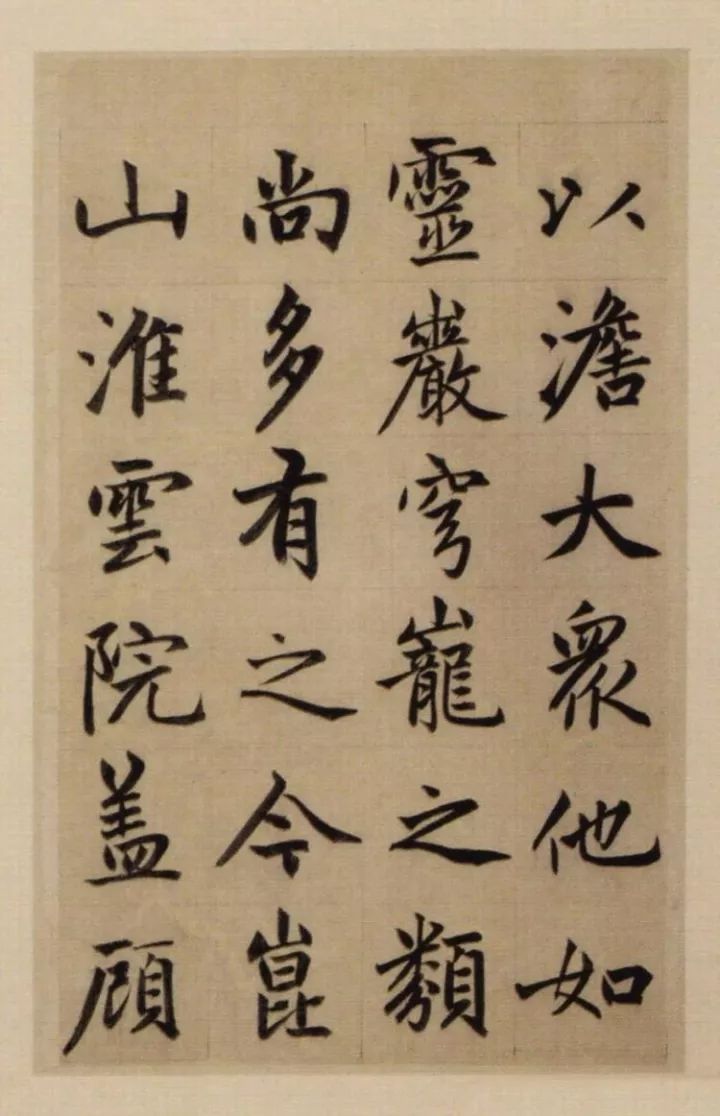 以澹大眾他如
靈巖穹巃之類
尚多有之今崑
山淮雲院盖顧